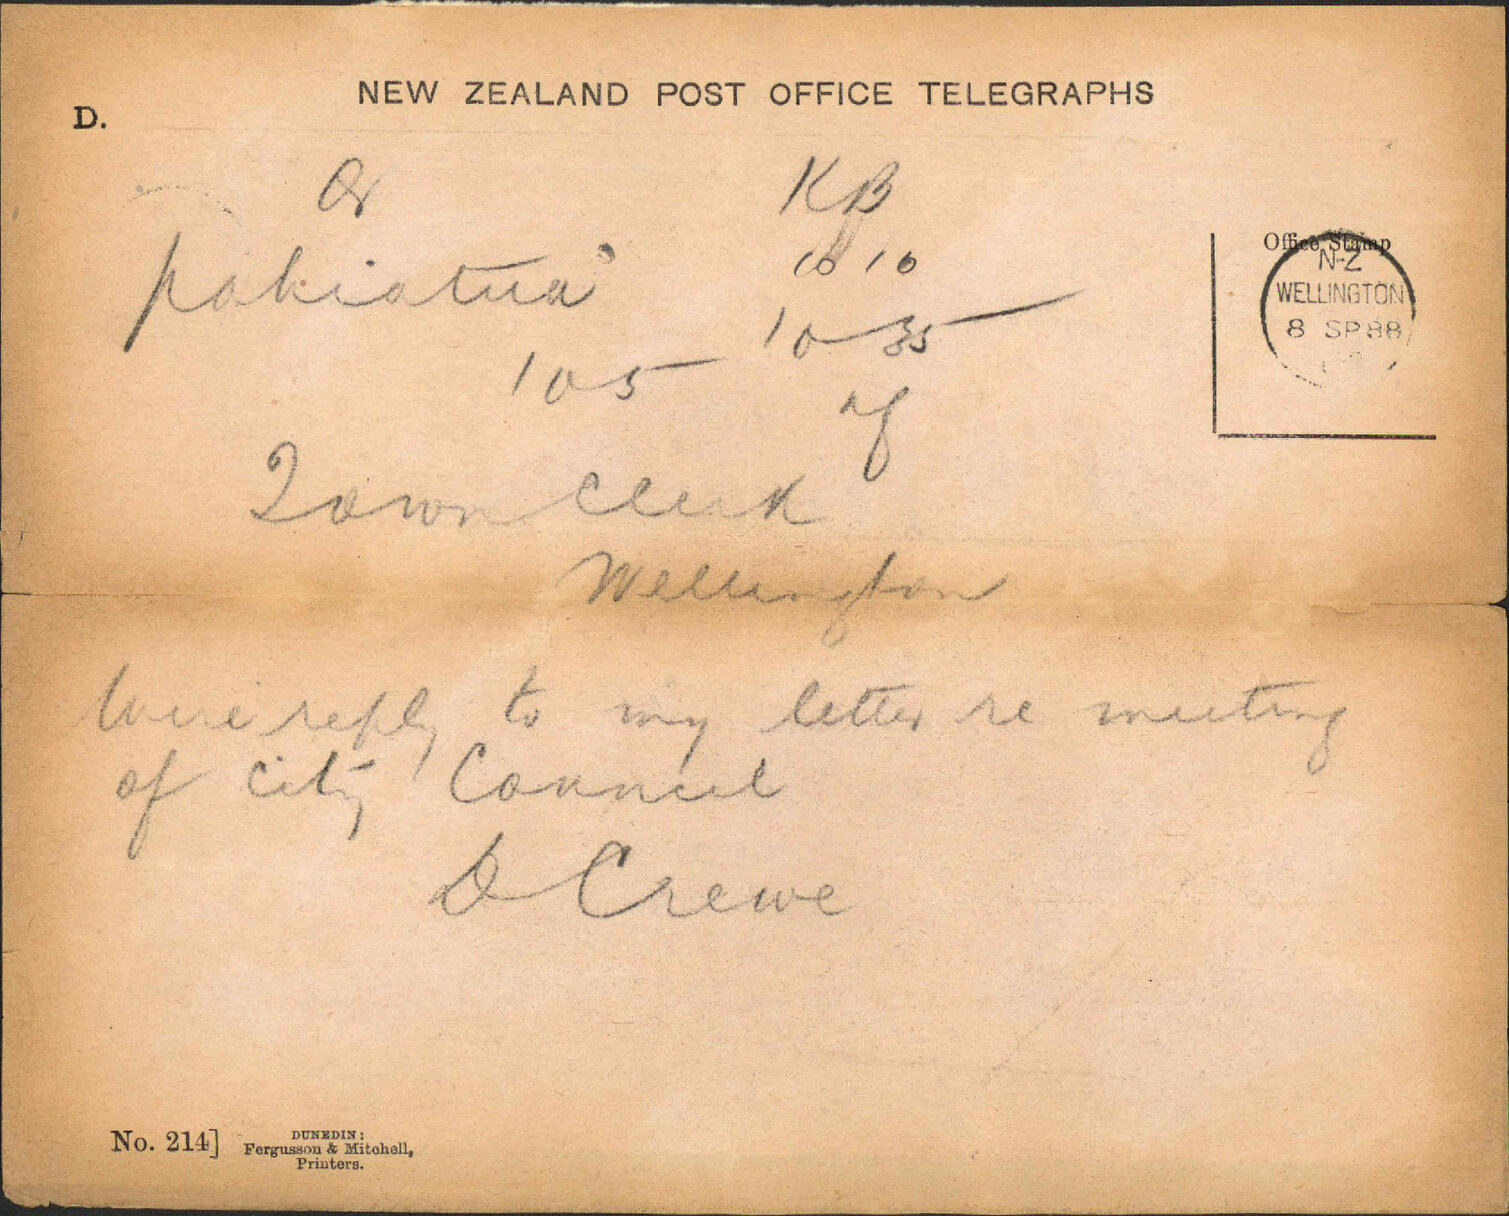 NEW ZEALAND POST OFFICE TELEGRAPHS
D.
KB
pahiatua
10 10
10 35
105
Office Stamp
N-Z
WELLINGTON
8 SP 88
Town Clerk
Wellington
Wire reply to my letter re meeting
of City Council
D Crewe
No. 214]
DUNEDIN:
Fergusson & Mitchell,
Printers.